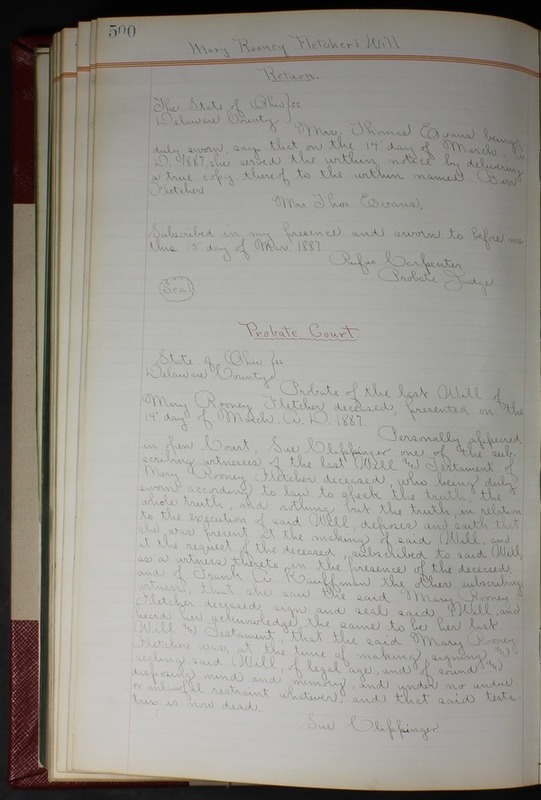 500
Mary Rooney Fletcher's Will
Return.
The State of Ohio } ss
Delaware County
Mrs. Thomas Evans being
duly sworn, says that on the 14" day of March A.
D. 1887, she served the within notice by delivering
a true copy thereof to the within named Burr
Fletcher
Mrs Thos Evans.
Subscribed in my presence and sworn to before me
this 15" day of Mar. 1887
Rufus Carpenter
Probate Judge
Seal
Probate Court.
State of Ohio } ss
Delaware County
Probate of the last Will of
Mary Rooney Fletcher deceased, presented on the
14" day of March, A. D. 1887.
Personally appeared
in open Court, Sue Clippinger one of the sub-
scribing witnesses of the last Will & Testament of
Mary Rooney Fletcher deceased, who being duly
sworn according to law to speak the truth, the
whole truth, and nothing but the truth, in relation
to the execution of said Will, deposes and saith that
she was present at the making of said Will, and
at the request of the deceased, subscribed to said Will,
as a witness thereto, in the presence of the deceased,
and of Frank A. Kauffman the other subscribing
witness, that she saw the said Mary Rooney
Fletcher deceased, sign and seal said Will, and
heard her acknowledge the same to be her last
Will & Testament, that the said Mary Rooney
Fletcher was, at the time of making, signing &
sealing said Will, of legal age, and of sound &
disposing mind and memory, and under no undue
or unlawful restraint whatever, and that said testa-
trix is now dead.
Sue Clippinger